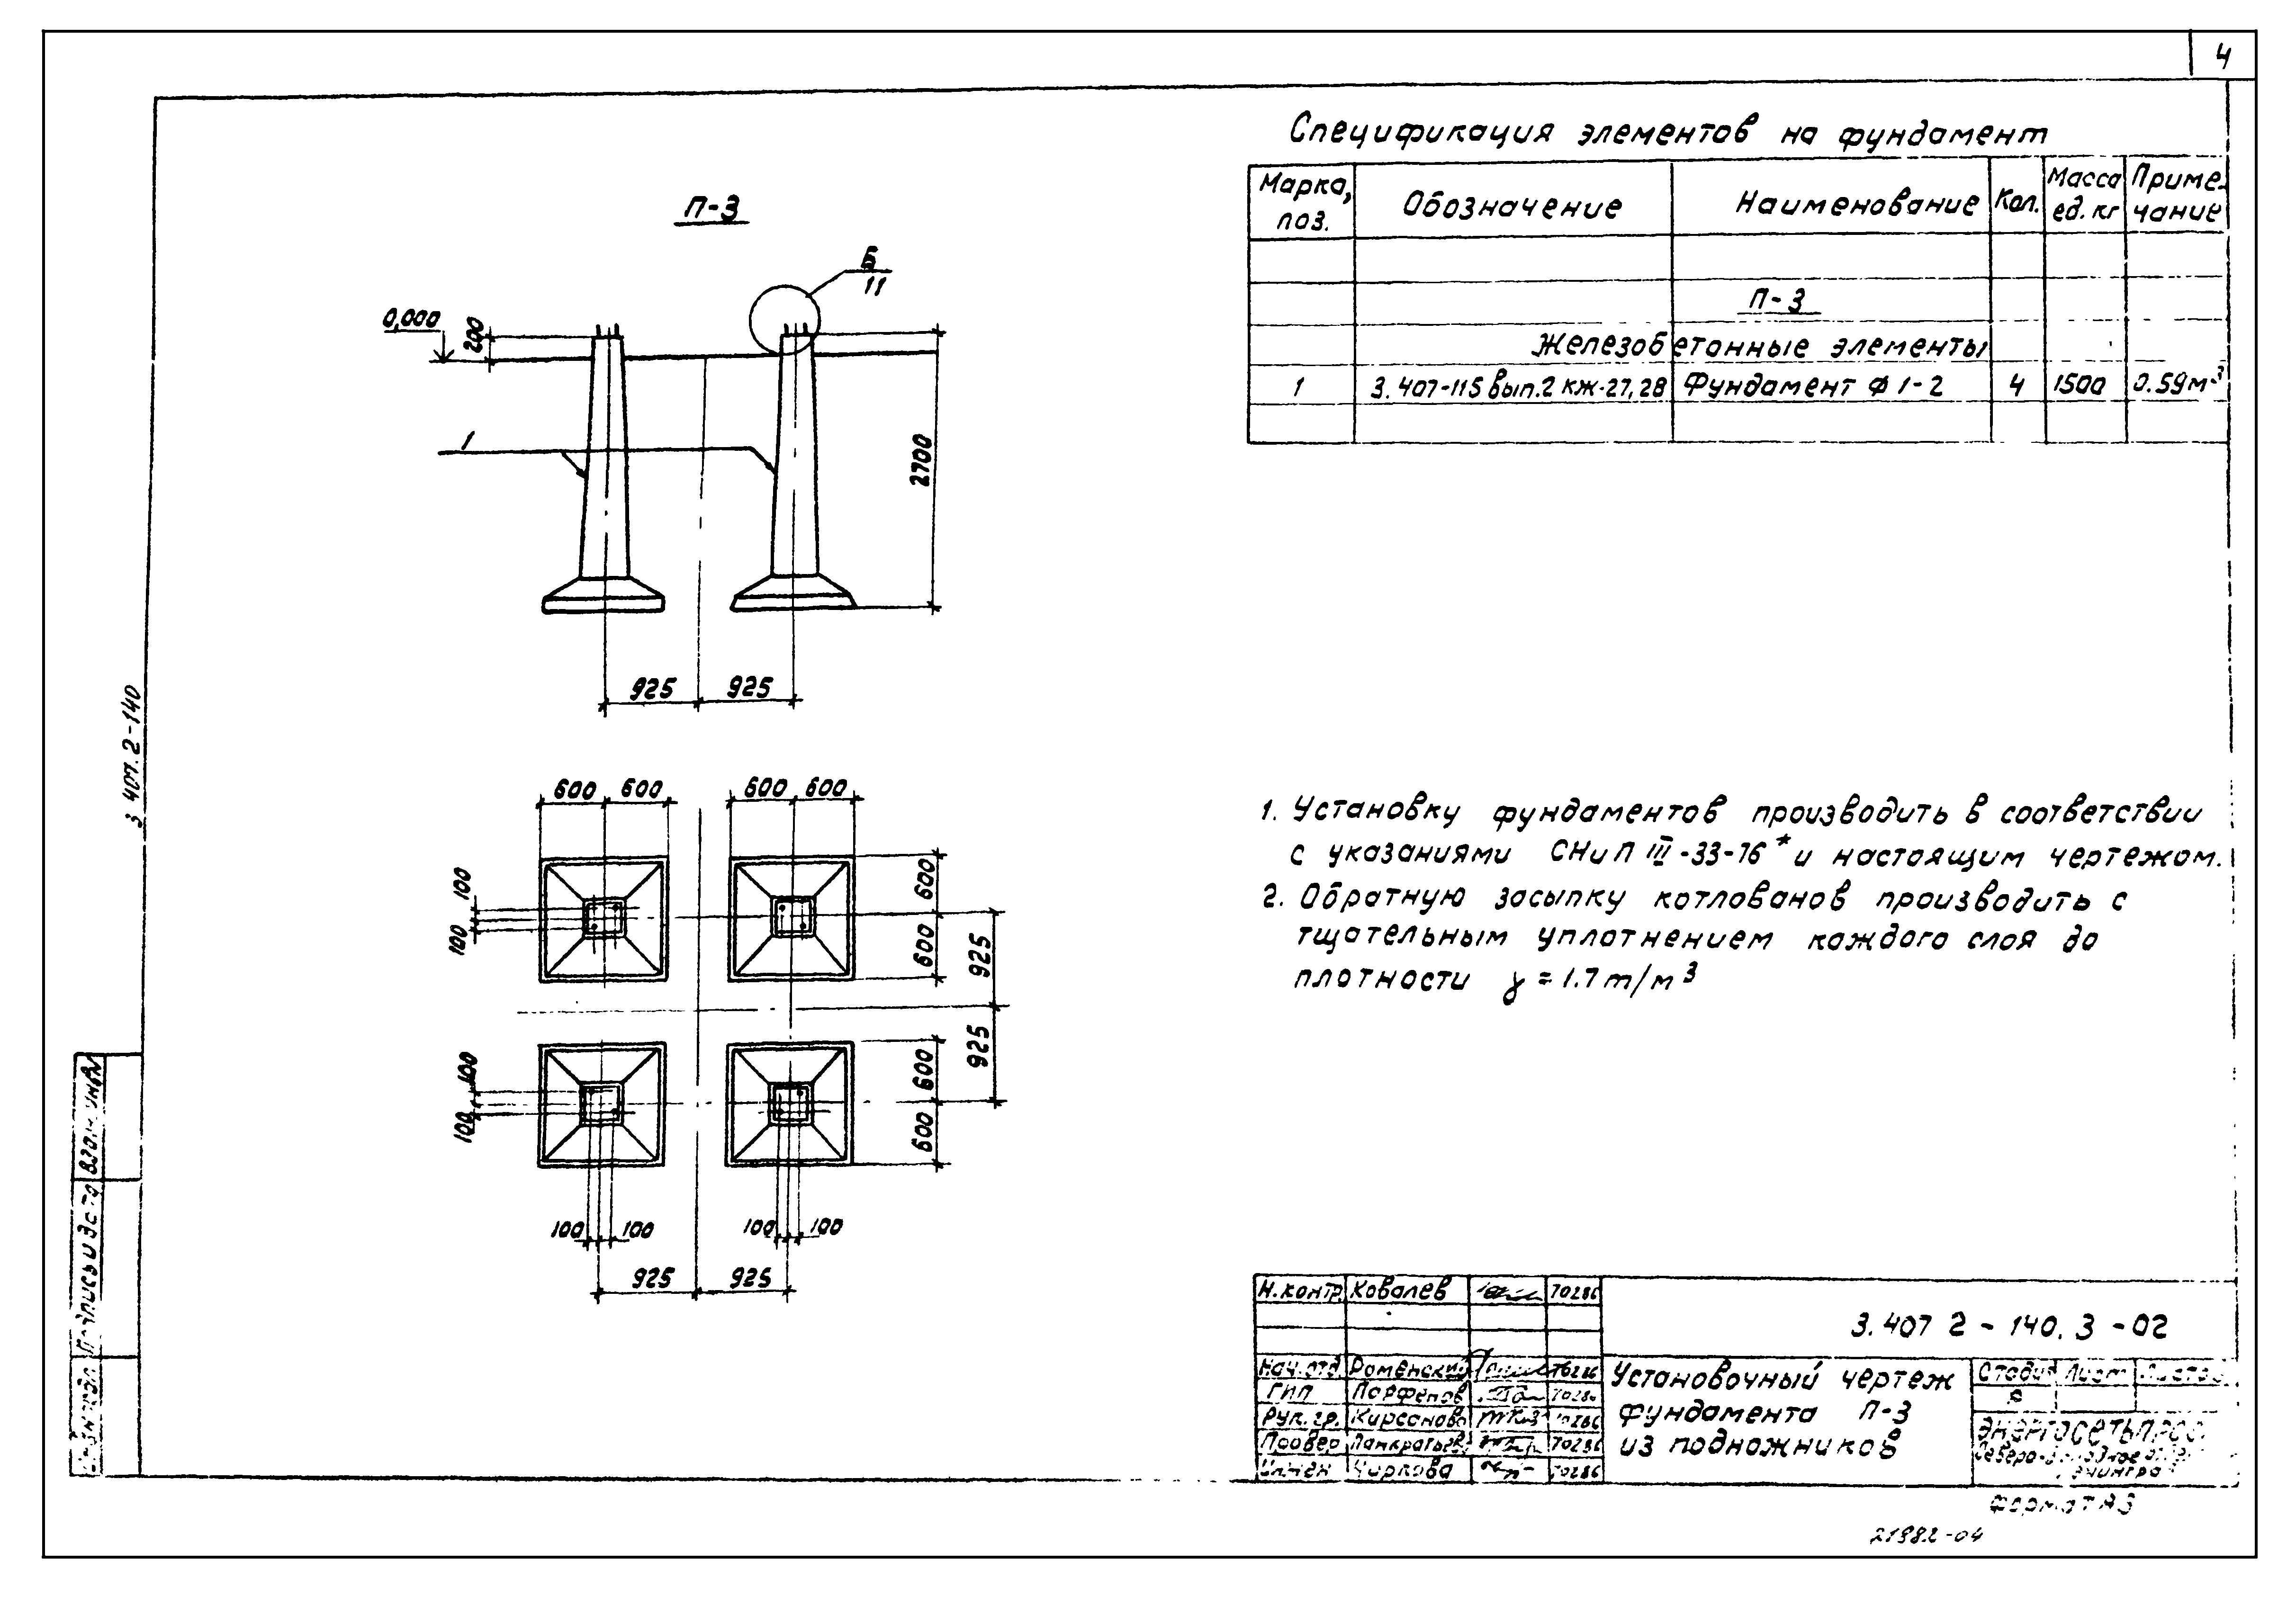 4
Спецификация элементов на фундамент
Марка, поз. Обозначение Наименование Кол. Масса ед. кг Приме-чание
П-3
Железобетонные элементы
1 3.407-115 вып.2 КЖ-27,28 Фундамент Ф1-2 4 1500 0.59м³
П-3
Б
11
0,000
200
1
2700
925 925
600 600 600 600
100
100
600
600
925
925
100
100
600
600
100 100 100 100
925 925
1. Установку фундаментов производить в соответствии
с указаниями СНиП III-33-76* и настоящим чертежом.
2. Обратную засыпку котлованов производить с
тщательным уплотнением каждого слоя до
плотности γ = 1.7 т/м³
3 407.2-140
Взам. инв№
Подпись и дата
Н.контр. Ковалев 70286
3.407 2 - 140.3 - 02
Нач.отд Роменский
ГИП Парфенов
Рук. гр. Кирсанова
Провер Панкратьев 70286
Инжен Чиркова 70286
Установочный чертеж
фундамента П-3
из подножников
Стадия Лист Листов
Р
Энергосетьпроект
Формат А3
21982-04